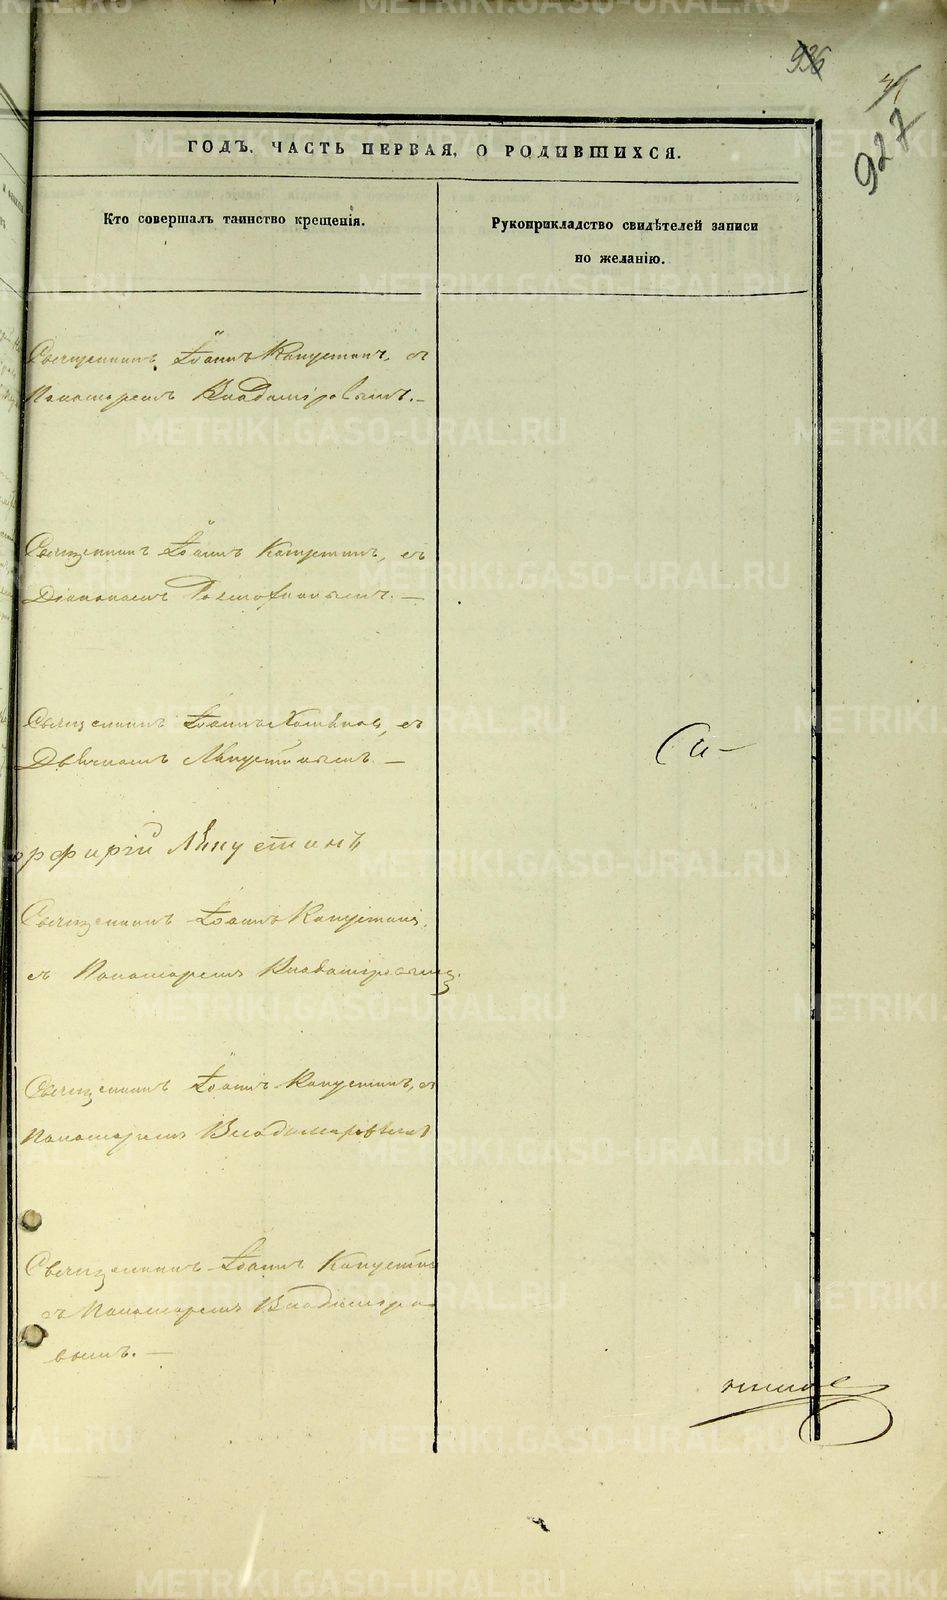 936
927
ГОДЪ, ЧАСТЬ ПЕРВАЯ, О РОДИВШИХСЯ.
Кто совершалъ таинство крещенія.
Рукоприкладство свидѣтелей записи
по желанію.
Священникъ Іоаннъ Капустинъ, съ
Пономаремъ Владиміровымъ.—
Священникъ Іоаннъ Капустинъ, съ
Діакономъ
Священникъ Іоаннъ Хомяковъ, съ
Дьячкомъ Ляпустинымъ.—
орфирій Ляпустинъ
Са-
Священникъ Іоаннъ Капустинъ,
съ Пономаремъ Владиміровымъ.
Священникъ Іоаннъ Капустинъ, съ
Пономаремъ Владиміровымъ
Священникъ Іоаннъ Капустинъ
съ Пономаремъ Владиміро-
вымъ.—
METRIKI.GASO-URAL.RU